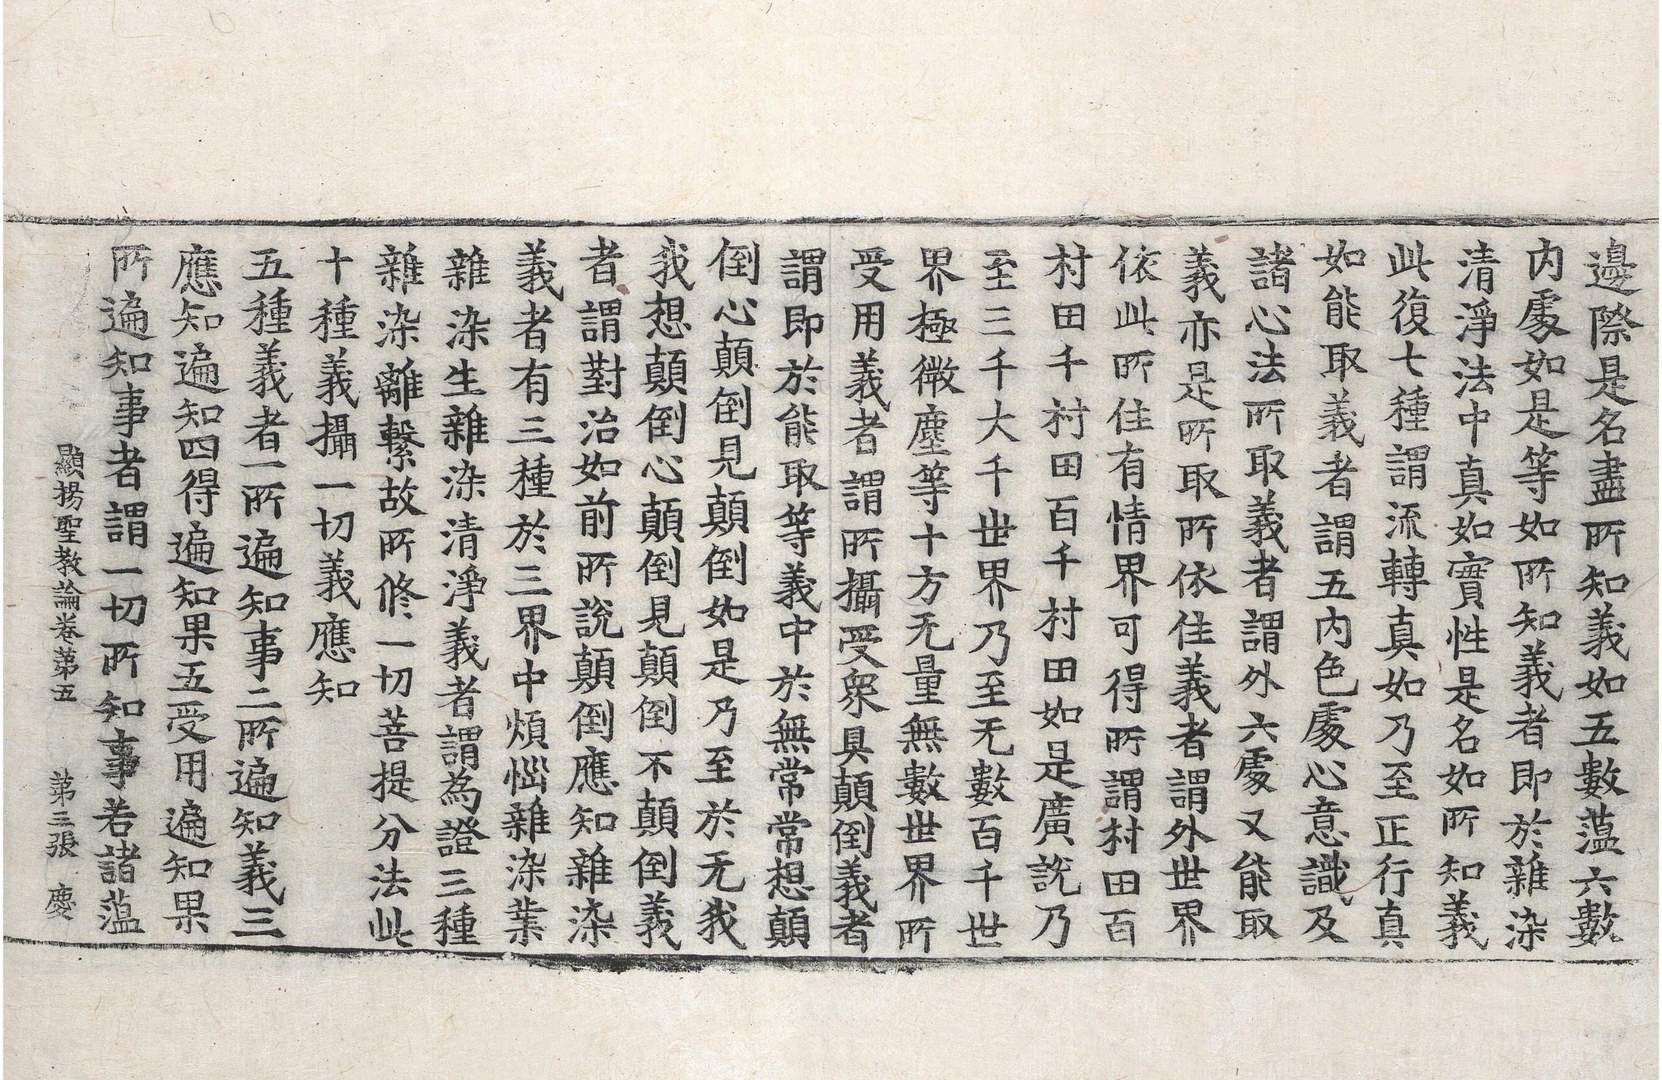 邊際是名盡所知義如五數蕰六數
内處如是等如所知義者即於雜染
清淨法中真如實性是名如所知義
此復七種謂流轉真如乃至正行真
如能取義者謂五内色處心意識及
諸心法所取義者謂外六處又能取
義亦是所取所依住義者謂外世界
依此所住有情界可得所謂村田百
村田千村田百千村田如是廣說乃
至三千大千世界乃至无數百千世
界極微塵等十方无量無數世界所
受用義者謂所攝受衆具顛倒義者
謂即於能取等義中於無常常想顛
倒心顛倒見顛倒如是乃至於无我
我想顛倒心顛倒見顛倒不顛倒義
者謂對治如前所說顛倒應知雜染
義者有三種於三界中煩惱雜染業
雜染生雜染清淨義者謂為證三種
雜染離繫故所修一切菩提分法此
十種義攝一切義應知
五種義者一所遍知事二所遍知義三
應知遍知四得遍知果五受用遍知果
所遍知事者謂一切所知事若諸蕰
顯揚聖教論卷第五 第三張 慶